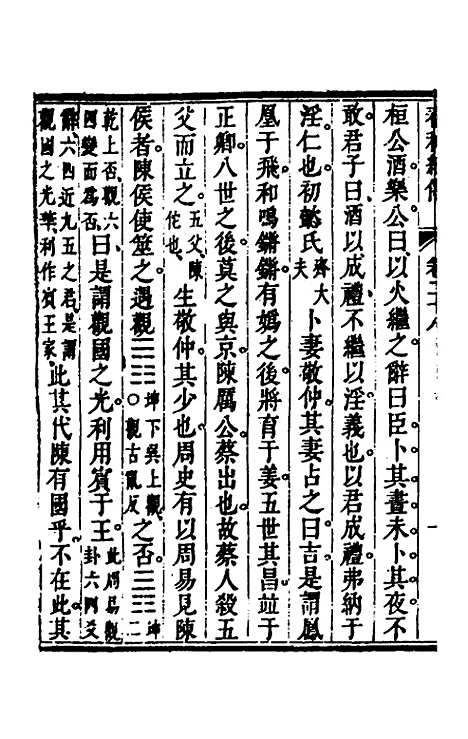 桓公酒樂公曰以火繼之辭曰臣卜其晝未卜其夜不
敢君子曰酒以成禮不繼以淫義也以君成禮弗納于
淫仁也初懿氏齊大夫卜妻敬仲其妻占之曰吉是謂鳳
凰于飛和鳴鏘鏘有嬀之後將育于姜五世其昌並于
正卿八世之後莫之與京陳厲公蔡出也故蔡人殺五
父而立之五父陳佗也生敬仲其少也周史有以周易見陳
侯者陳侯使筮之遇觀☴☷坤下巽上觀○觀古亂反之否☰☷坤
乾上否觀六四變而爲否曰是謂觀國之光利用賓于王此周易觀卦六四爻
辭六四近九五之君是謂觀國之光華利作賓王家此其代陳有國乎不在此其